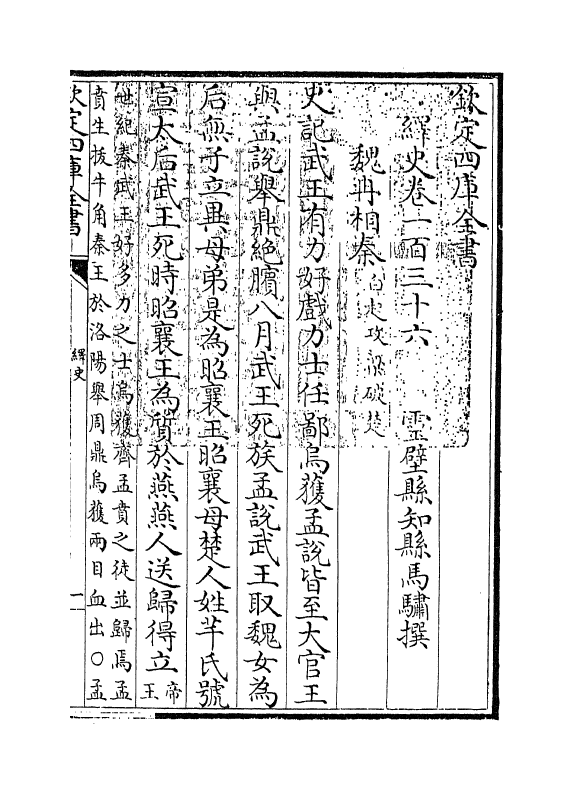 欽定四庫全書
繹史卷一百三十六　靈璧縣知縣馬驌撰
魏冉相秦白起攻
史記武王有力好戲力士任鄙烏獲孟說皆至大官王
與孟說舉鼎絶臏八月武王死族孟說武王取魏女為
后無子立異母弟是為昭襄王昭襄母楚人姓羋氏號
宣太后武王死時昭襄王為質於燕燕人送歸得立帝王
世紀秦武王好多力之士烏獲齊孟賁之徒並歸焉孟
賁生拔牛角秦王於洛陽舉周鼎烏獲兩目血出○孟
欽定四庫全書
繹史
一